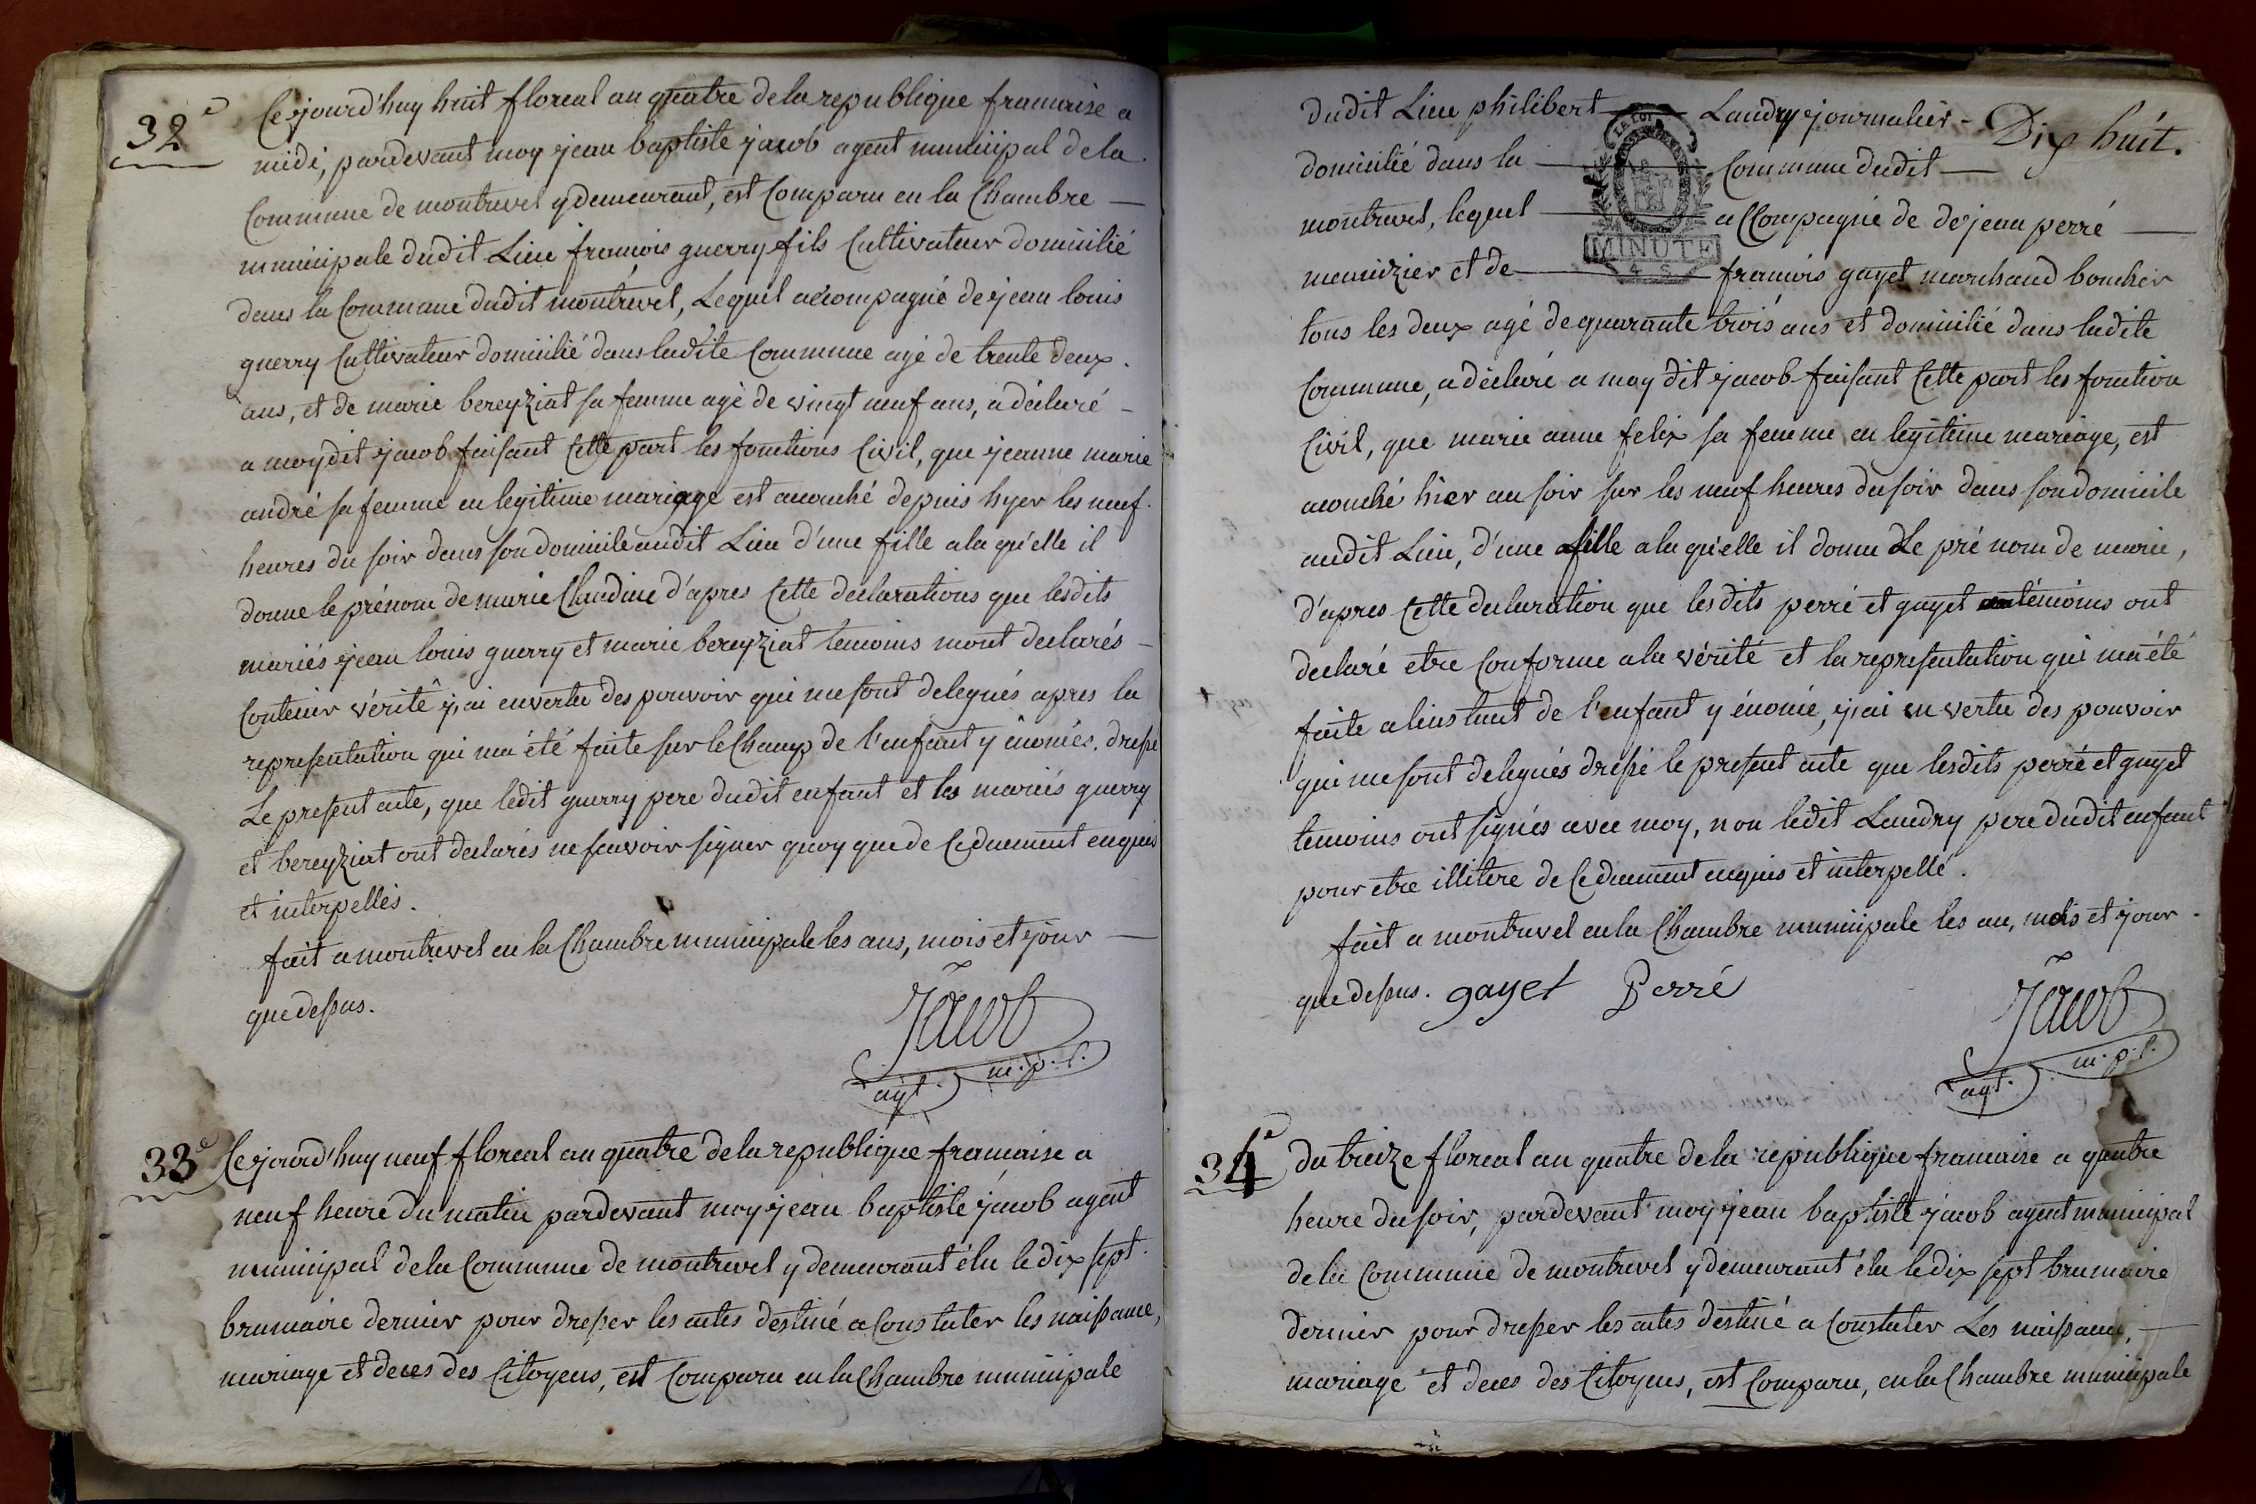 32e
Cejourd'huy huit floreal an quatre de la republique francaise a
midi, pardevant moy jean baptiste jacob agent municipal de la
Commune de montrevel y demeurant, est Comparu en la Chambre
municipale dudit Lieu francois guerry fils Cultivateur domicilié
dans la Commune dudit montrevel, Lequel accompagné de jean louis
guerry Cultivateur domicilié dans ladite Commune agé de trente deux
ans, et de marie bereyziat sa femme agé de vingt neuf ans, a déclaré
a moy dit jacob faisant Cette part les fonctions Civil, que jeanne marie
andré sa femme en legitime mariage est acouché depuis hyer les neuf
heures du soir dans son domicile audit Lieu d'une fille a la qu'elle il
donne le prénom de marie Claudine d'apres Cette declarations que lesdits
mariés jean louis guerry et marie bereyziat temoins mont declarés
Contenir vérité j'ai en vertu des pouvoir qui me sont delegués apres la
representation qui ma été faite sur le Champ de l'enfant y énoncés, dressé
Le present acte, que ledit guerry pere dudit enfant et les mariés guerry
et bereyziat ont declarés ne scavoir signer quoy que de Ce duement enquis
et interpellés.
fait a montrevel en la Chambre municipale les ans, mois et jour
que dessus.
Jacob
agt. m.p.l.
33e
Cejourd'huy neuf floreal an quatre de la republique francaise a
neuf heure du matin pardevant moy jean baptiste jacob agent
municipal de la Commune de montrevel y demeurant élu le dix sept
brumaire dernier pour dresser les actes destiné a Constater les naissance,
mariage et deces des Citoyens, est Comparu en la Chambre municipale
Dix huit.
dudit Lieu philibert Landry journalier
domicilié dans la Commune dudit
montrevel, lequel accompagné de de jean perré
menuizier et de francois gayet marchand boucher
tous les deux agé de quarante trois ans et domicilié dans ladite
Commune, a déclaré a moy dit jacob faisant Cette part les fonction
Civil, que marie anne felix sa femme en legitime mariage, est
acouché hier au soir sur les neuf heures du soir dans son domicile
audit Lieu, d'une fille a la qu'elle il donne Le pré nom de marie,
d'apres Cette declaration que lesdits perré et gayet témoins ont
declaré etre Conforme a la vérité et la representation qui ma été
faite a linstant de l'enfant y énoncé, j'ai en vertu des pouvoir
qui me sont delegués dressé le present acte que lesdits perré et gayet
temoins ont signés avec moy, non ledit Landry pere dudit enfant
pour etre illitere de Ce duement enquis et interpellé.
fait a montrevel en la Chambre municipale les an, mois et jour
que dessus. gayet Perré
Jacob
agt. m.p.l.
LA LOI
MINUTE
4 S
34e
du treize floreal an quatre de la republique francaise a quatre
heure du soir, pardevant moy jean baptiste jacob agent municipal
de la Commune de montrevel y demeurant élu le dix sept brumaire
dernier pour dresser les actes destiné a Constater Les naissance,
mariage et deces des Citoyens, est Comparu, en la Chambre municipale